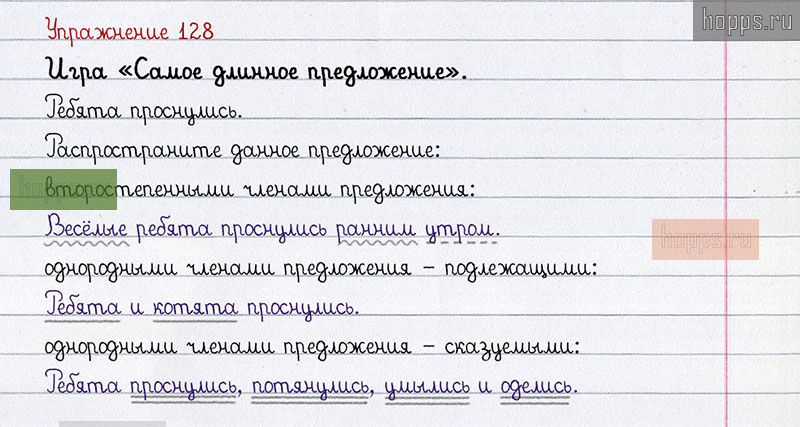 Упражнение 128
hopps.ru
Игра «Самое длинное предложение».
Ребята проснулись.
Распространите данное предложение:
второстепенными членами предложения:
Весёлые ребята проснулись ранним утром.
hopps.ru
однородными членами предложения – подлежащими:
Ребята и котята проснулись.
однородными членами предложения – сказуемыми:
Ребята проснулись, потянулись, умылись и оделись.